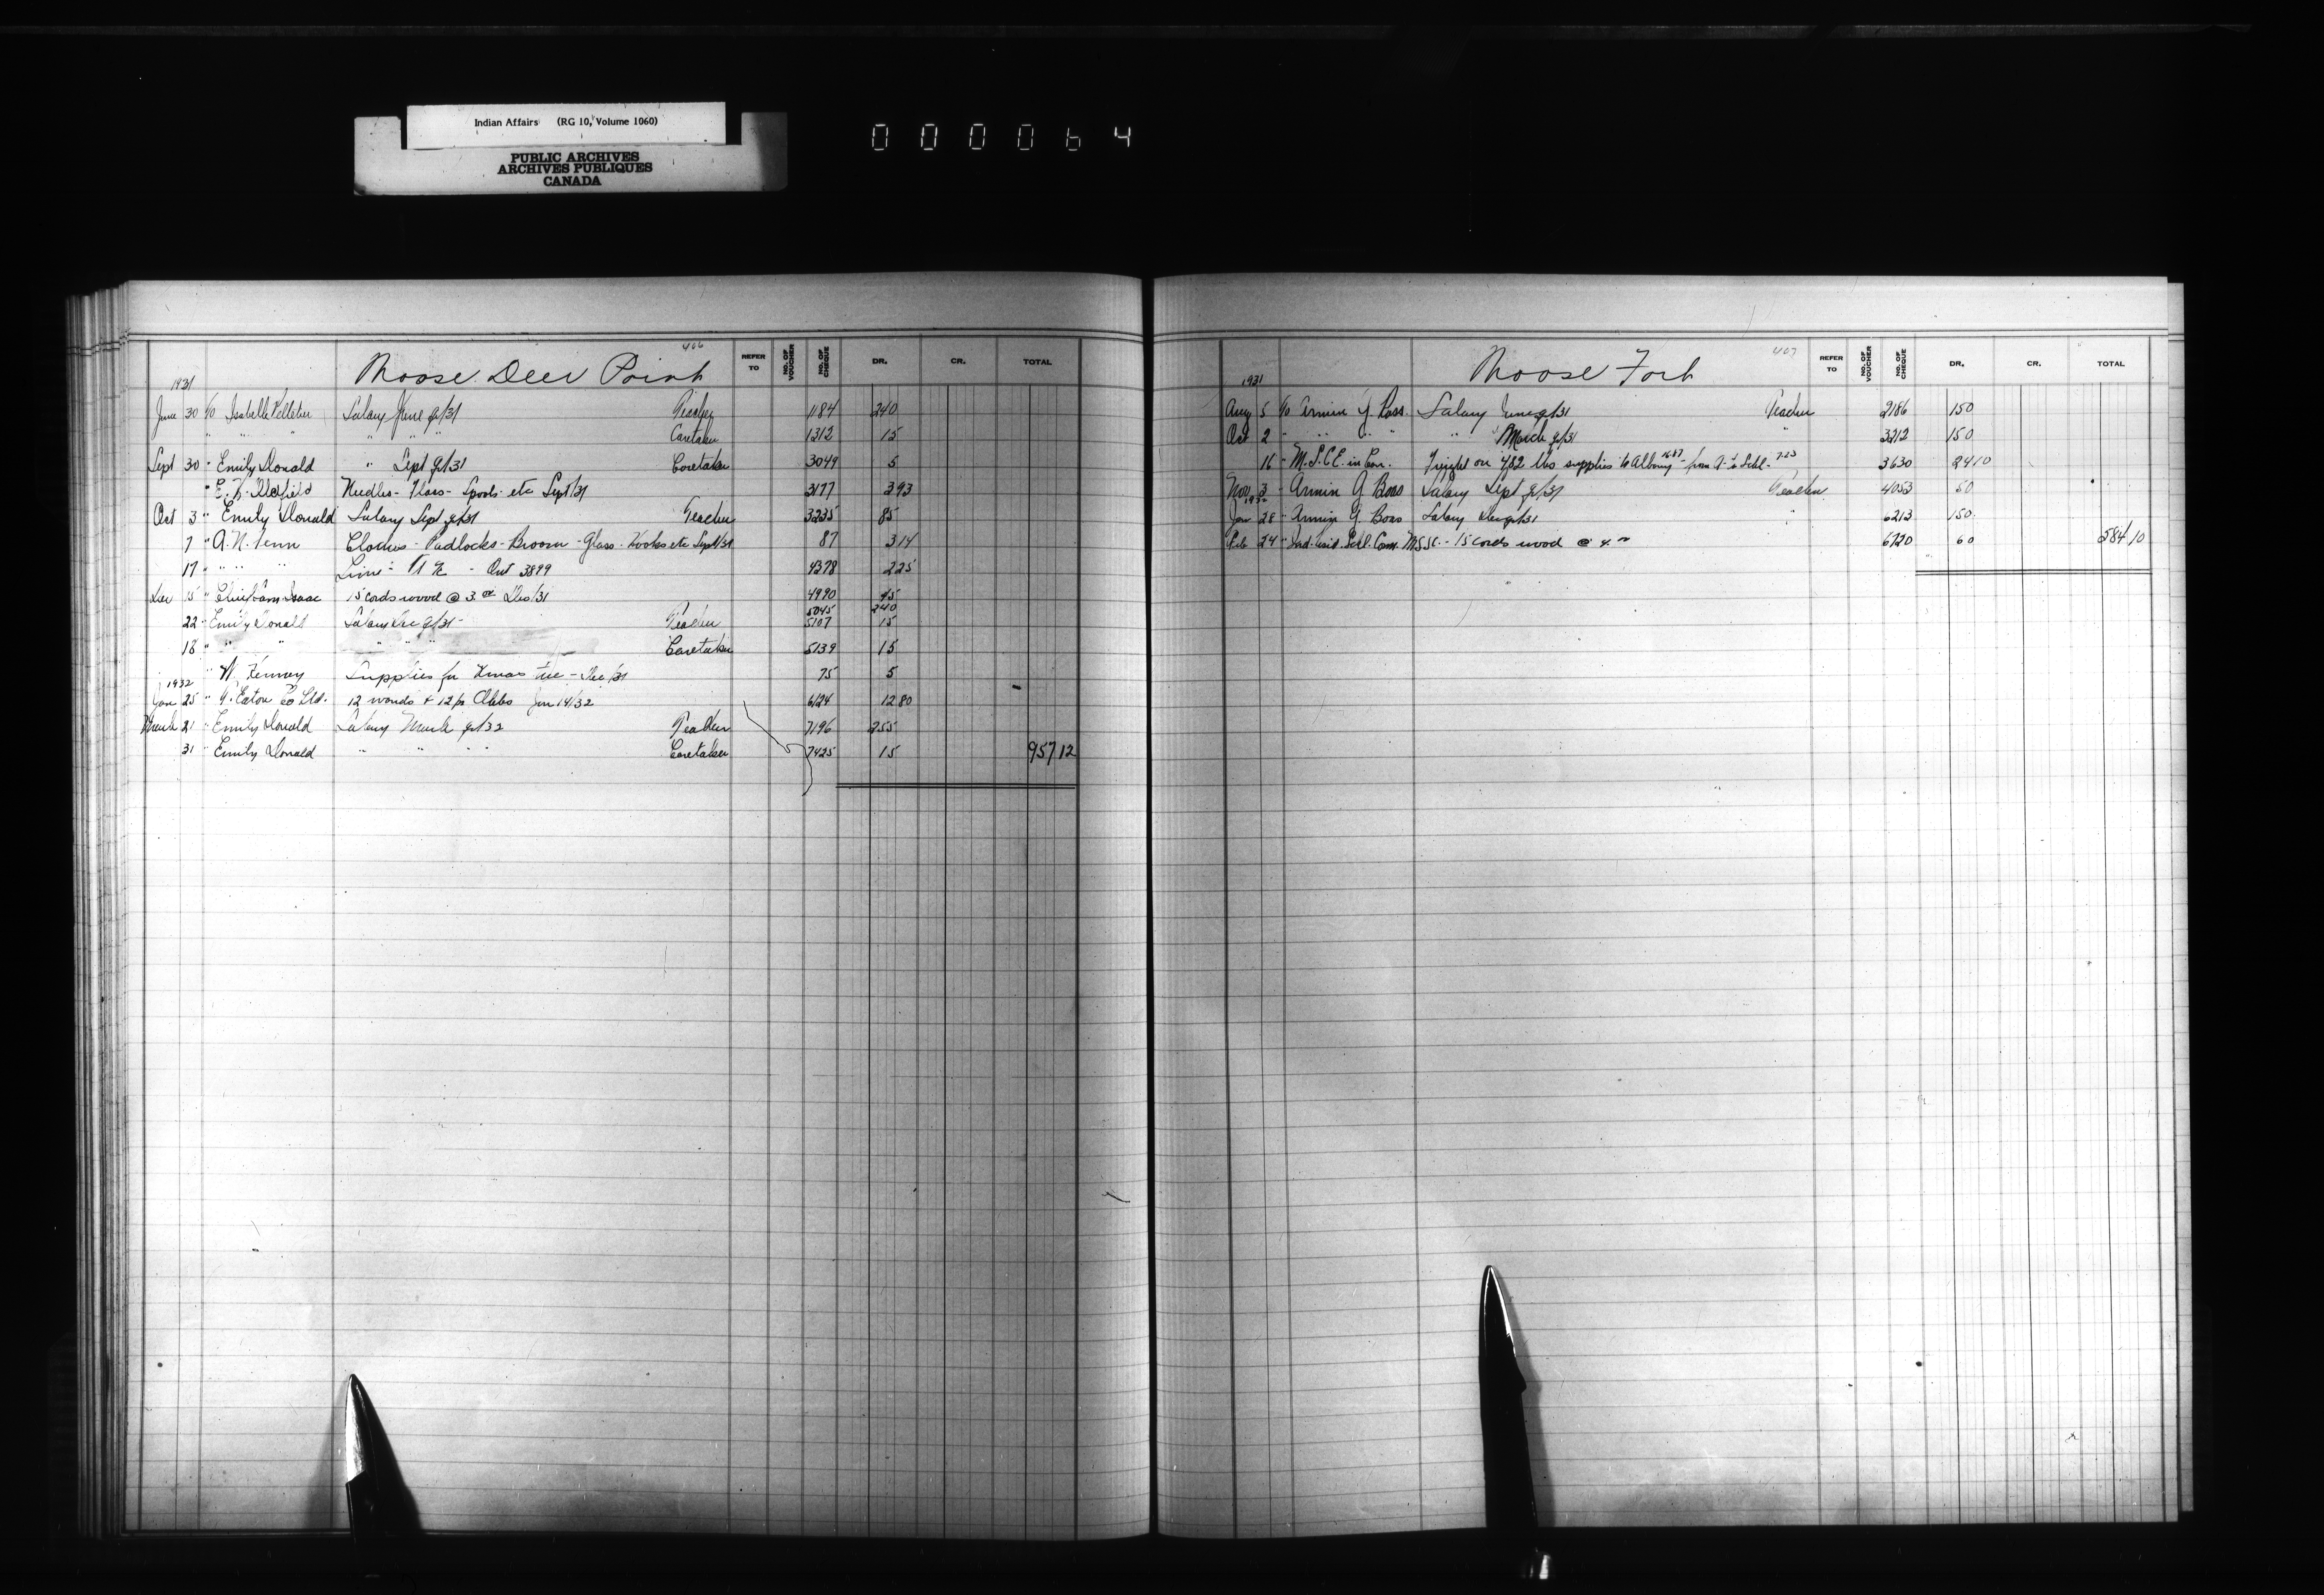 Indian Affairs (RG 10, Volume 1060)
PUBLIC ARCHIVES
ARCHIVES PUBLIQUES
CANADA
000064
406
Moose Deer Point
REFER TO NO. OF VOUCHER NO. OF CHEQUE DR. CR. TOTAL
1931
June 30 c/o Isabelle Pelletier Salary June q/31 Teacher 1184 240
" " " " " " Caretaker 1312 15
Sept 30 " Emily Donald " Sept q/31 Caretaker 3049 5
" E. Needles - - Spools etc Sept/31 3177 3 93
Oct 3 " Emily Donald Salary Sept q/31 Teacher 3235 85
7 " A. N. Fenn - Padlocks - Broom - Glass - Hooks etc Sept/31 87 3 14
17 " " " Lime - - Oct 3899 4378 2 25
Dec 15 " Isaac 15 cords wood @ 3.00 Dec/31 4990 45
5045 240
22 " Emily Donald Salary Dec q/31 - Teacher 5107 15
18 " " " " " " Caretaker 5139 15
" W. Fenney Supplies for Xmas tree - Dec/31 75 5
1932
Jan 25 " T. Eaton Co Ltd. 12 wands & 12 pr Clubs Jan 14/32 6124 12 80
March 21 " Emily Donald Salary March q/32 Teacher 7196 255
31 " Emily Donald " " " " Caretaker 7425 15 957 12
407
Moose Fort
REFER TO NO. OF VOUCHER NO. OF CHEQUE DR. CR. TOTAL
1931
Aug 5 c/o Armin G. Salary June q/31 Teacher 2186 150
Oct 2 " " " " " March q/31 " 3212 150
16 " M.S.C.E. in Can. Freight on 482 lbs supplies to Albany 16.87 - from A. to Schl. 7.23 3630 24 10
Nov 3 " Armin G Boas Salary Sept q/31 Teacher 4053 50
1932
Jan 28 " Armin G. Boas Salary Dec q/31 " 6213 150
Feb 24 " Ind. Resid. Schl. Com. M.S.S.C. - 15 cords wood @ 4.00 6720 60 584 10